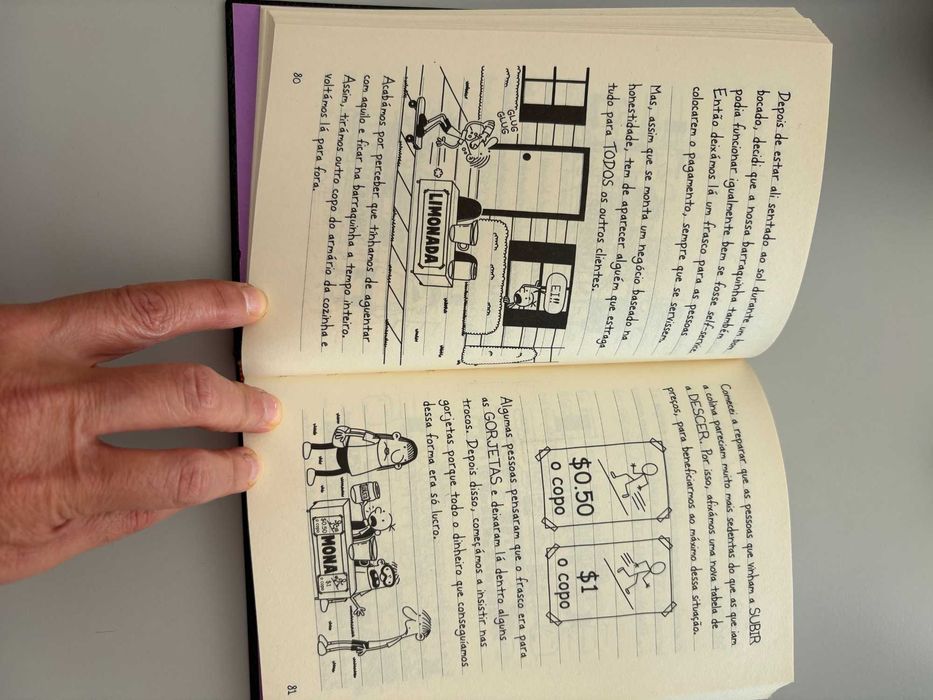 Depois de estar ali sentado ao sol durante um bom
bocado, decidi que a nossa barraquinha também
podia funcionar igualmente bem se fosse self-service.
Então deixámos lá um frasco para as pessoas
colocarem o pagamento, sempre que se servissem.
Mas, assim que se monta um negócio baseado na
honestidade, tem de aparecer alguém que estraga
tudo para TODOS os outros clientes.
EI!!
GLUG
GLUG
LIMONADA
Acabámos por perceber que tínhamos de aguentar
com aquilo e ficar na barraquinha a tempo inteiro.
Assim, tirámos outro copo do armário da cozinha e
voltámos lá para fora.
80
Comecei a reparar que as pessoas que vinham a SUBIR
a colina pareciam muito mais sedentas do que as que iam
a DESCER. Por isso, afixámos uma nova tabela de
preços, para beneficiarmos ao máximo dessa situação.
$0.50
o copo
$1
o copo
Algumas pessoas pensaram que o frasco era para
as GORJETAS e deixaram lá dentro alguns
trocos. Depois disso, começámos a insistir nas
gorjetas porque todo o dinheiro que conseguíamos
dessa forma era só lucro.
$0.50
MONA
$1
81